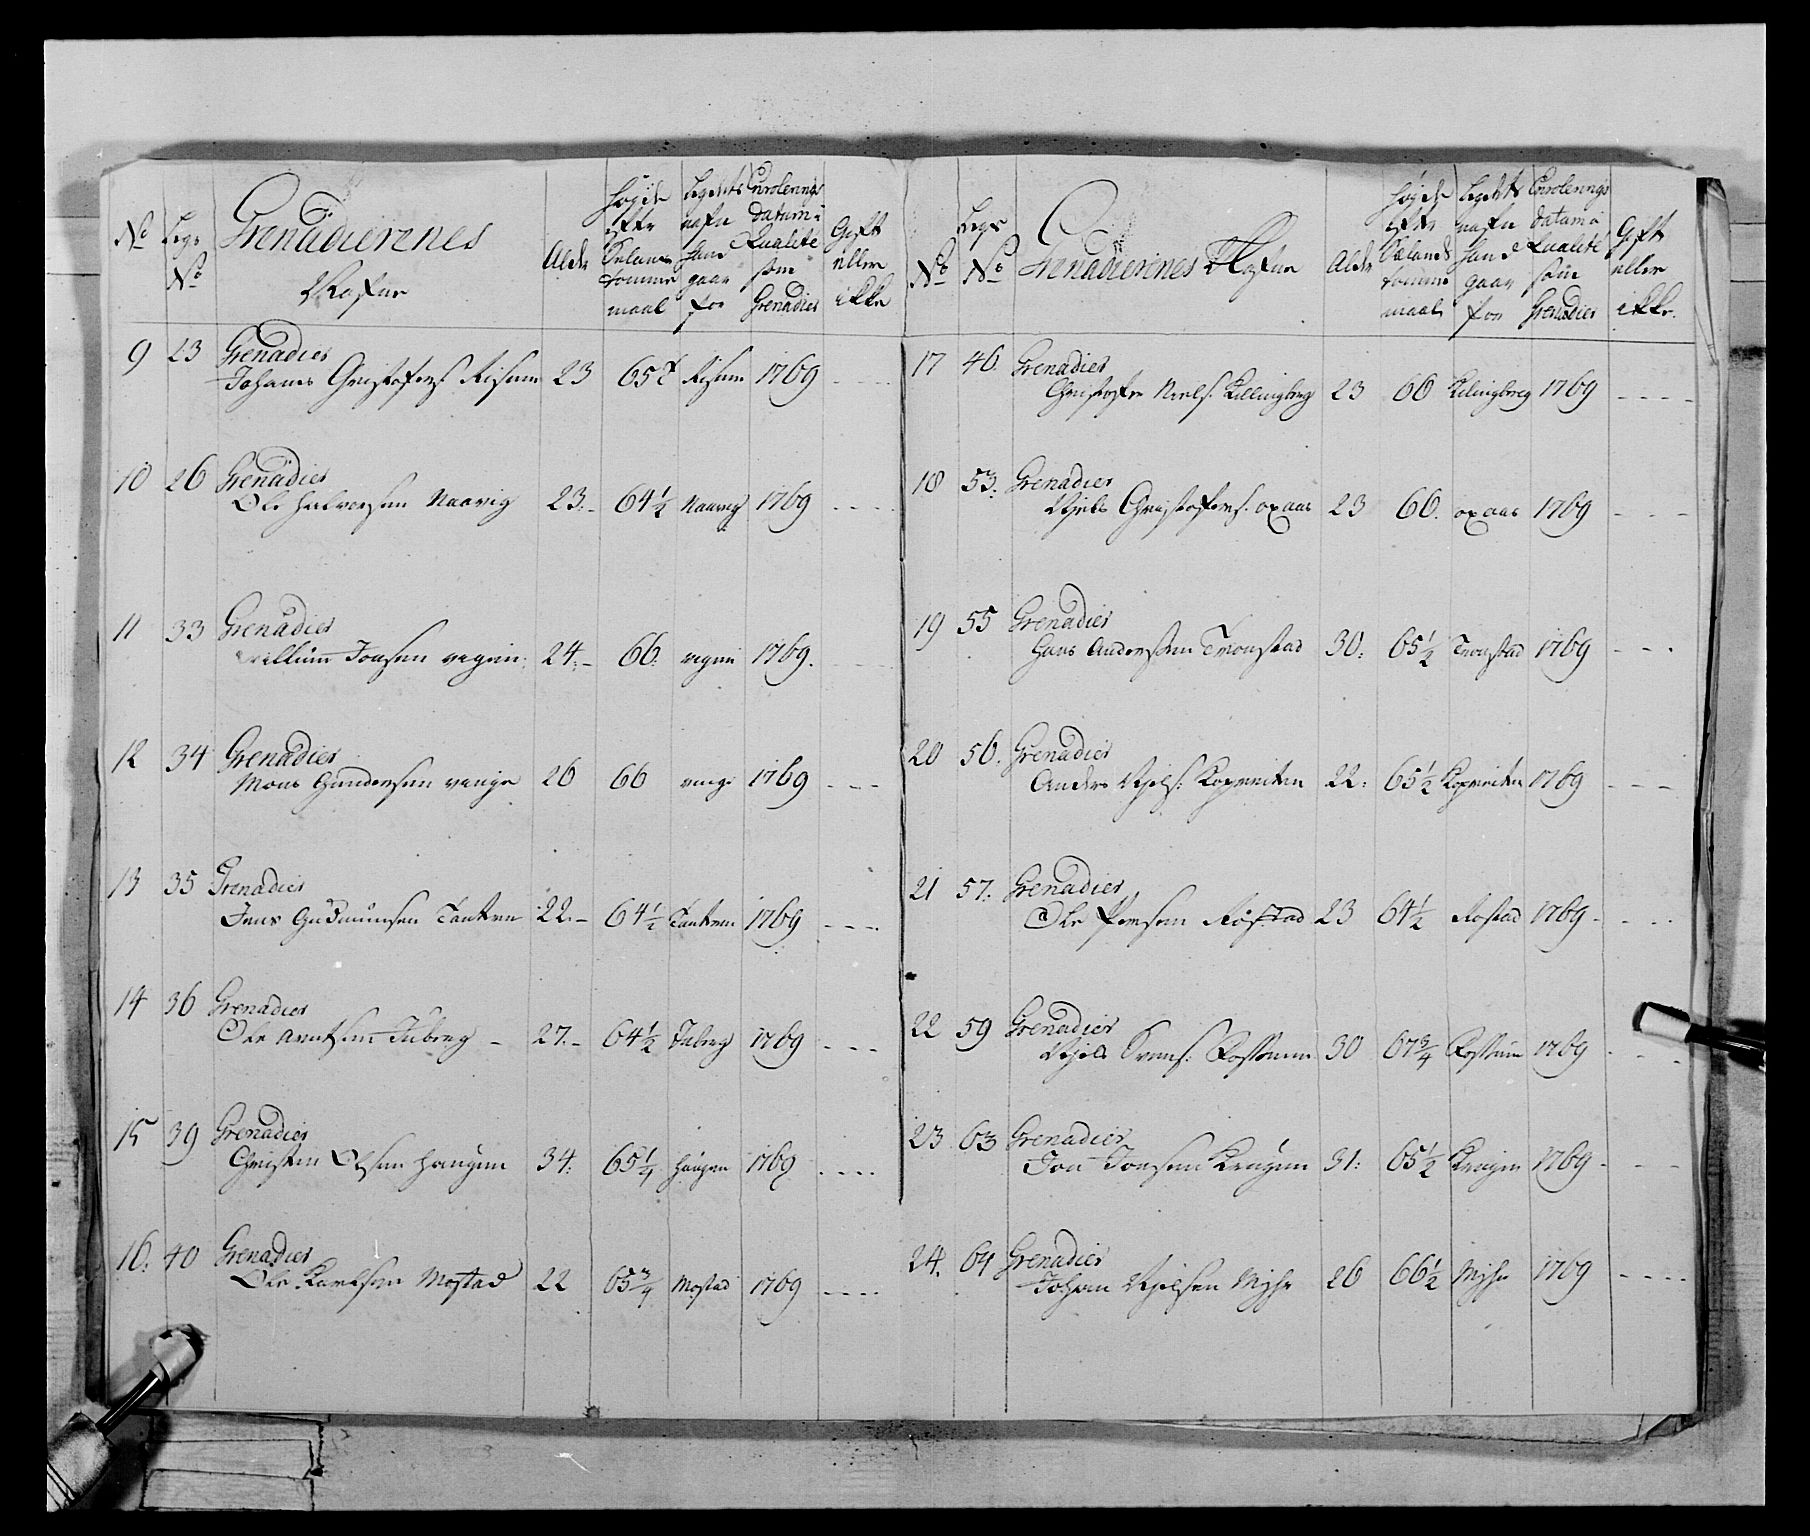 No Legs No Grenadierenes Nafne Alder Høyde efter Sælands tomme maal Legdets nafn Hand gaar for Enrolerings datum i Qualité som Grenadier Gift eller ikke
9 23 Grenadier
Johanes Christofers. Risum 23 65 Risum 1769 - - - -
10 26 Grenadier
Ole Halvorsen Naavig 23.- 64 1/2 Naavig 1769 - - - -
11 33 Grenadier
Willum Jonsen 24.- 66. 1769. - - - -
12 34 Grenadier
Mons Gundersen 26 66 1769 - - -
13 35 Grenadier
Jens Gudmunsen 22.- 64 1/2 1769 - - - -
14 36 Grenadier
Ole Arntsen Tuberg - 27.- 64 1/2 Tuberg 1769 - - -
15 39 Grenadier
Christen Olsen Haugen 34: 65 1/4 Haugen 1769 - - - -
16. 40 Grenadier
Ole Karlsen Mostad 22 65 3/4 Mostad 1769 - - - -
No Legs No Grenadierenes Nafne Alder Høyde efter Sælands tomme maal Legdets nafn Hand gaar for Enrolerings datum i Qualité som Grenadier Gift eller ikke.
17 46. Grenadier
Christofer Niels. Killingberg 23 66 Kilingberg 1769 - - - -
18 53. Grenadier
Njels Christofers. oxaas 23 66. oxaas 1769 - - - -
19 55 Grenadier
Hans Andersen Tronstad 30. 65 1/2 Tronstad 1769 - - -
20 56. Grenadier
Anders Njels: 22: 65 1/2 1769 - - -
21 57. Grenadier
Ole Persen Røstad 23 64 1/2 Rostad 1769 - - - -
22 59 Grenadier
Njels Svens: Rossum 30 67 3/4 Rossum 1769 - - - -
23 63 Grenadier
Jon Jonsen Krogen 31: 65 1/2 Krogen 1769 - - - -
24. 64 Grenadier
Johan Njelsen Myhr 26 66 1/2 Myhr 1769 - - - -